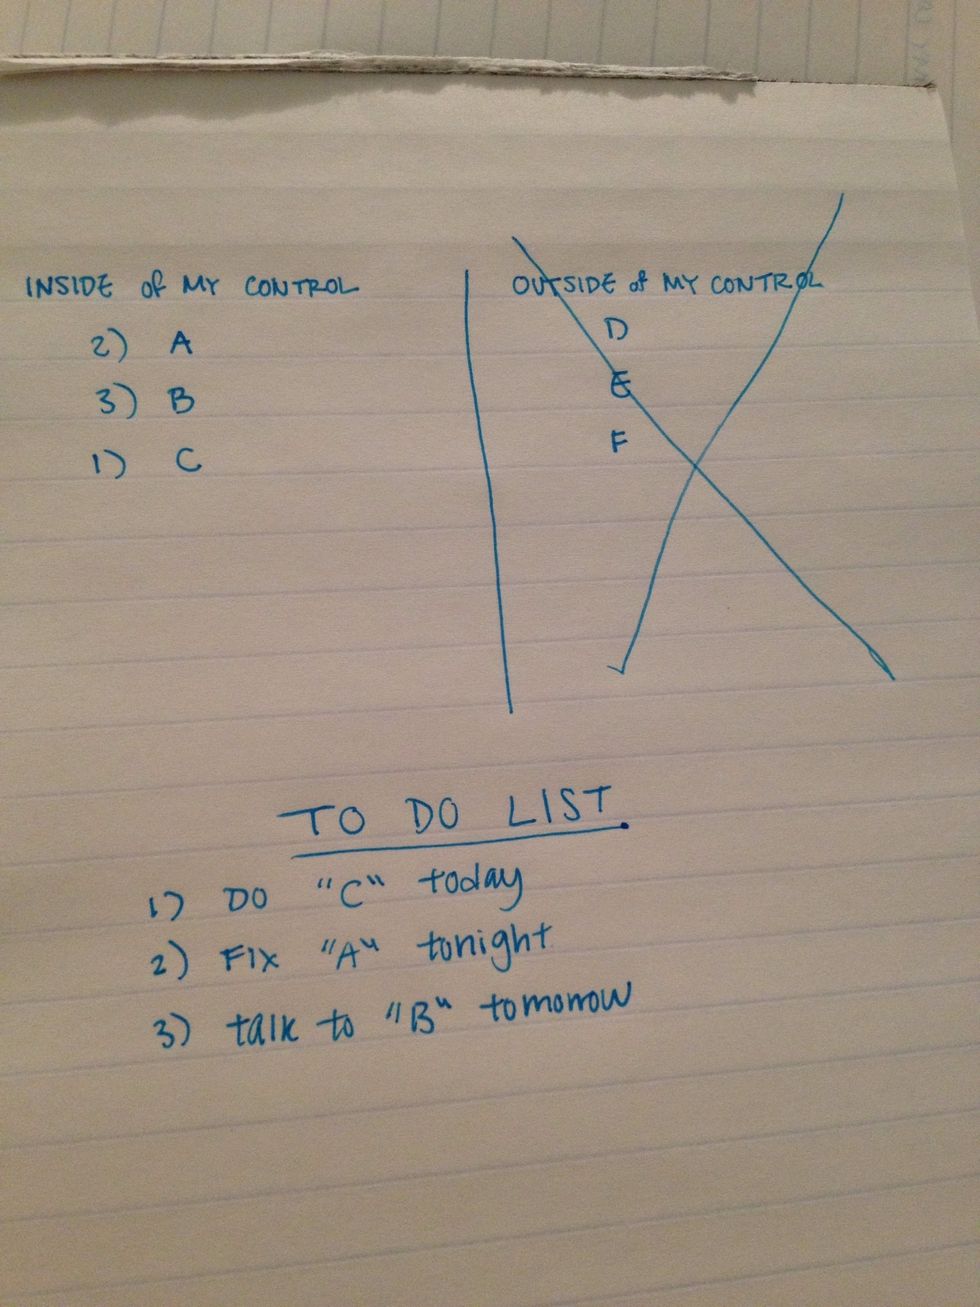 INSIDE of MY CONTROL
2) A
3) B
1) C
OUTSIDE of MY CONTROL
D
E
F
TO DO LIST.
1) DO "C" today
2) FIX "A" tonight
3) talk to "B" tomorrow